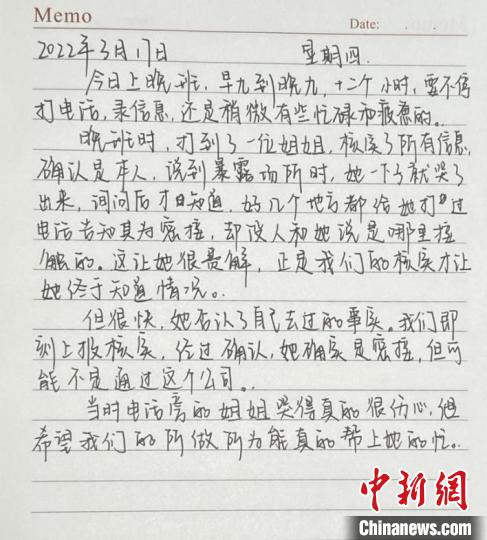 Memo
Date:
2022年3月17日 星期四.
今日上晚班,早九到晚九,十二个小时,要不停
打电话,录信息,还是稍微有些忙碌和疲惫的。
晚班时,打到了一位姐姐,核实了所有信息,
确认是本人,说到暴露场所时,她一下就哭了
出来,询问后才知道,好几个地方都给她打过
电话告知其为密接,却没人和她说是哪里接
触的。这让她很是 解,正是我们的核实才让
她终于知道情况。
但很快,她否认了自己去过的事实。我们即
刻上报核实,经过确认,她确实是密接,但可
能不是通过这个公司。
当时电话旁的姐姐哭得真的很伤心,但
希望我们的所做所为能真的帮上她的忙。
中新网
Chinanews.com